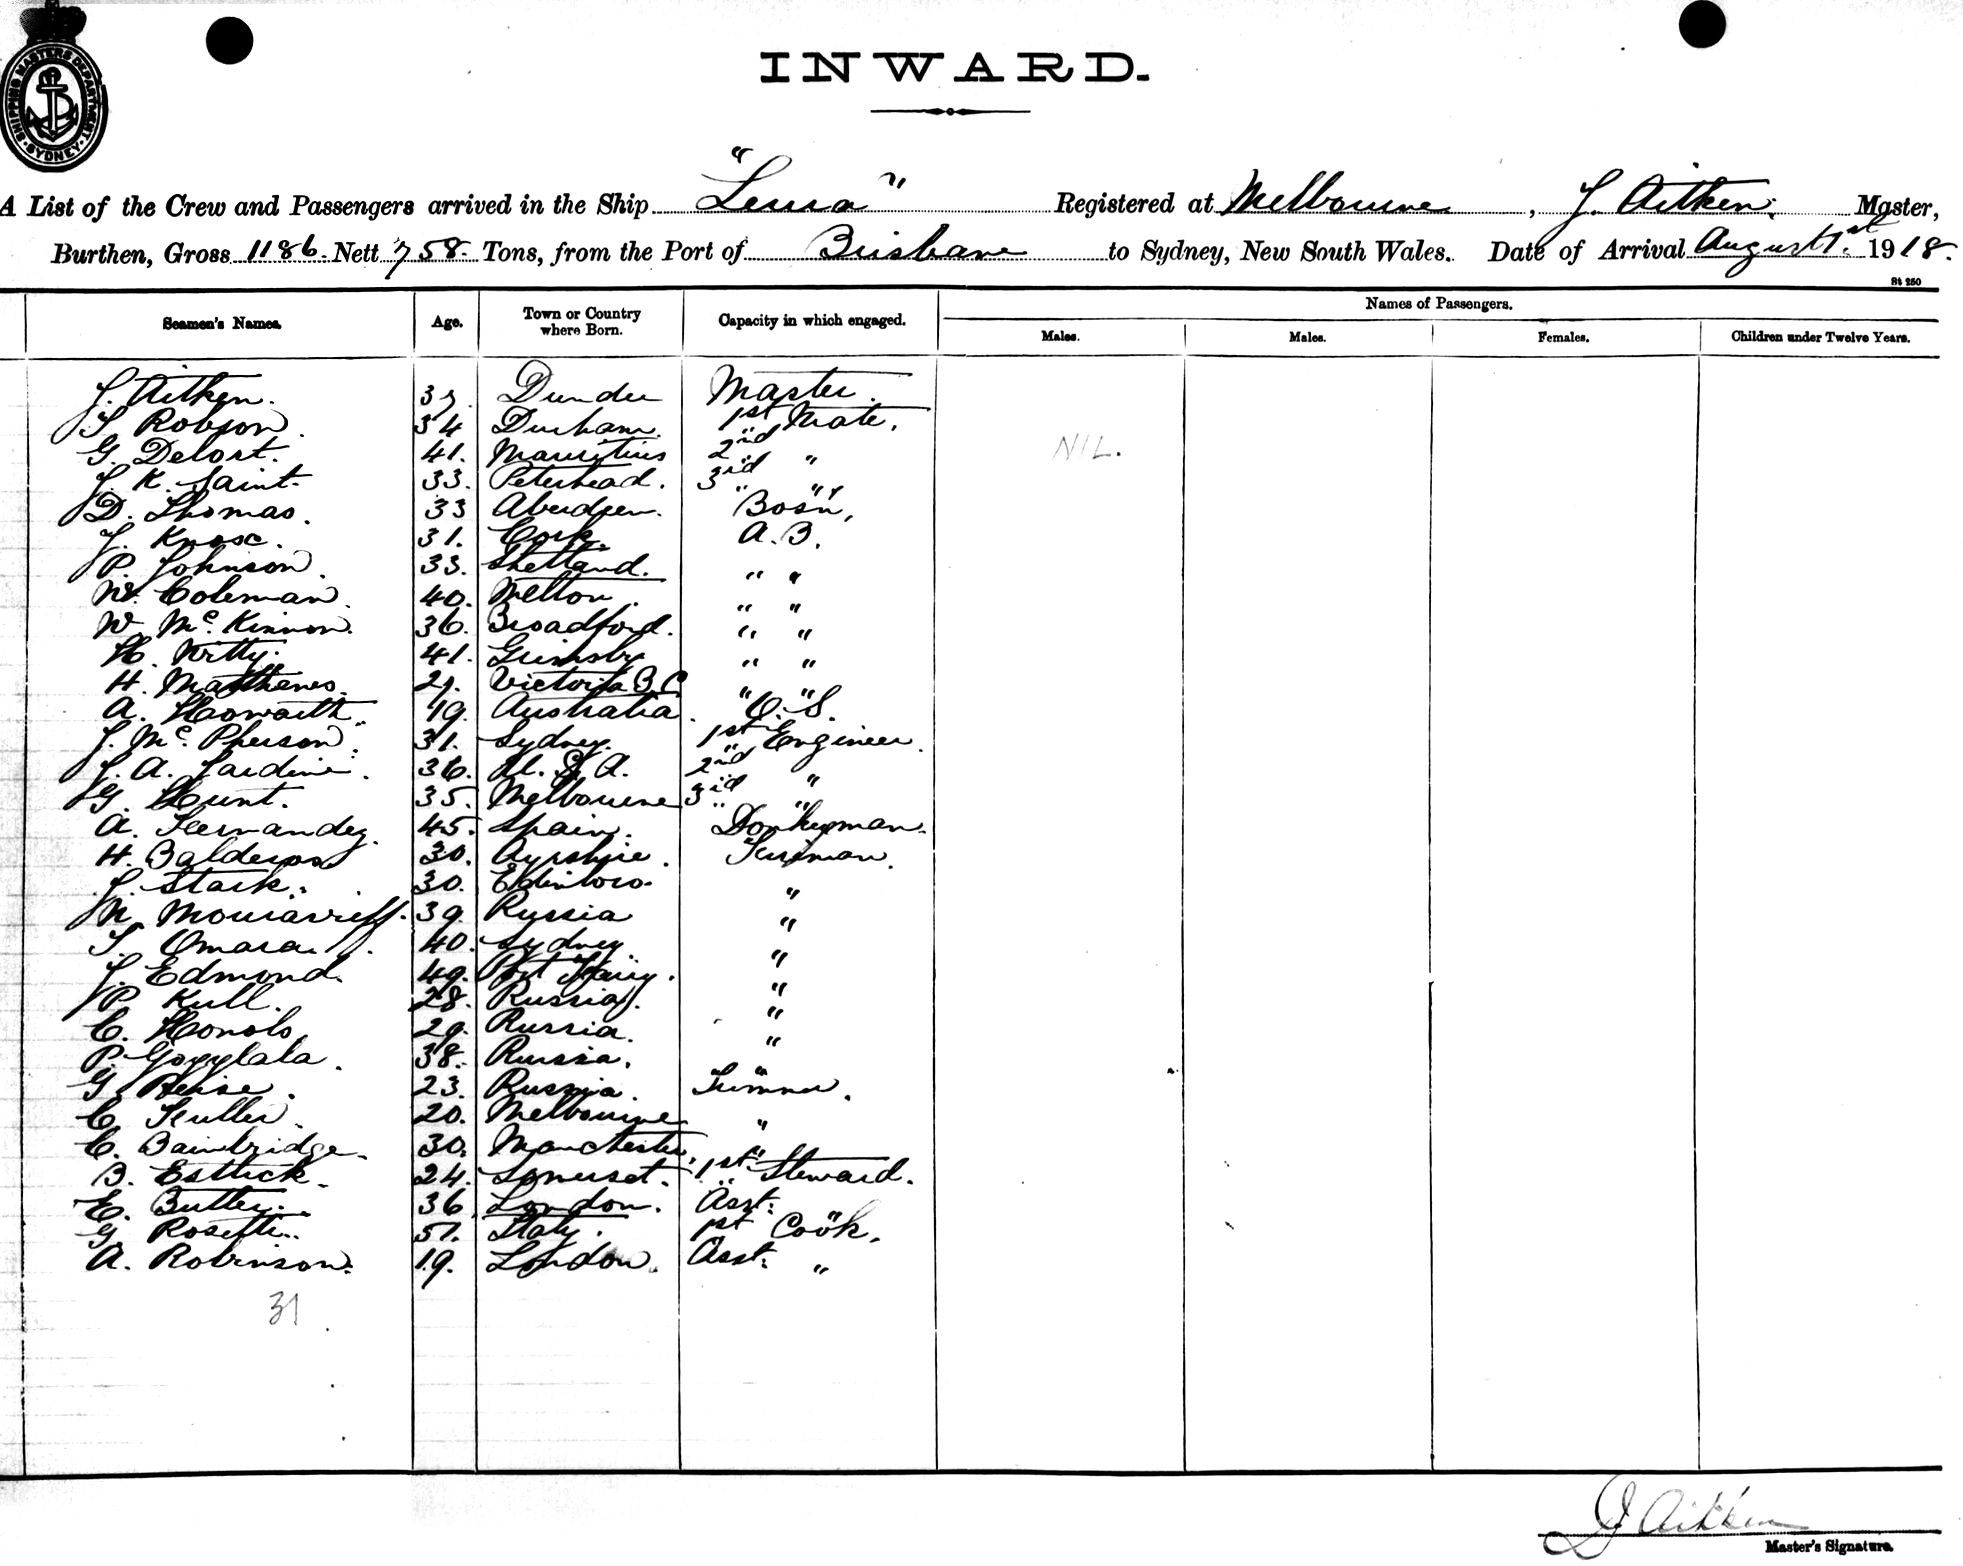 SHIPPING MASTERS DEPARTMENT
SYDNEY
INWARD.
A List of the Crew and Passengers arrived in the Ship "Lema" Registered at Melbourne, J. Aitken. Master,
Burthen, Gross 1186. Nett 758. Tons, from the Port of Brisbane to Sydney, New South Wales. Date of Arrival August 1st. 1918.
St 250
Seamen's Names. Age. Town or Country where Born. Capacity in which engaged. Names of Passengers.
Males. Males. Females. Children under Twelve Years.
J. Aitken. Dundee Master.
Robson. 34 Durham. 1st Mate.
G. Delort. 41. Mauritius 2nd "
J. K. Saint. 33. Peterhead. 3rd "
NIL.
D. Thomas. 33 Aberdeen. Bosn.
J. Knox. 31. Cork. A.B.
P. Johnson. 33. Shetland. " "
W. Coleman. 40. Melton. " "
W McKinnon. 36. Broadford. " "
H. Witty. 41. Grimsby " "
H. Matthews. 29. Victoria B.C " "
A. Howarth. 19. Australia. O.S.
J. McPherson. 31. Sydney. 1st Engineer.
J. A. Jardine. 36. U.S.A. 2nd "
G. Hunt. 35. Melbourne 3rd "
A. Fernandez. 45. Spain. Donkeyman.
H. Balderson 30. Ayrshire. Fireman.
J. Stark. 30. Edinboro. "
39. Russia "
Omara. 40. Sydney "
J. Edmond. 49. Port Fairy. "
P. Kull. 28. Russia. "
C. 29. Russia. "
P. 38. Russia. "
G. Heise. 23. Russia. Trimmer.
C. Fuller. 20. Melbourne "
C. Bainbridge. 30. Manchester. "
B. Estick. 24. Somerset. 1st Steward.
E. 36 London. Asst. "
G. Rosetti. 51. Italy. 1st Cook.
A. Robinson. 19. London. Asst. "
31
J Aitken
Master's Signature.